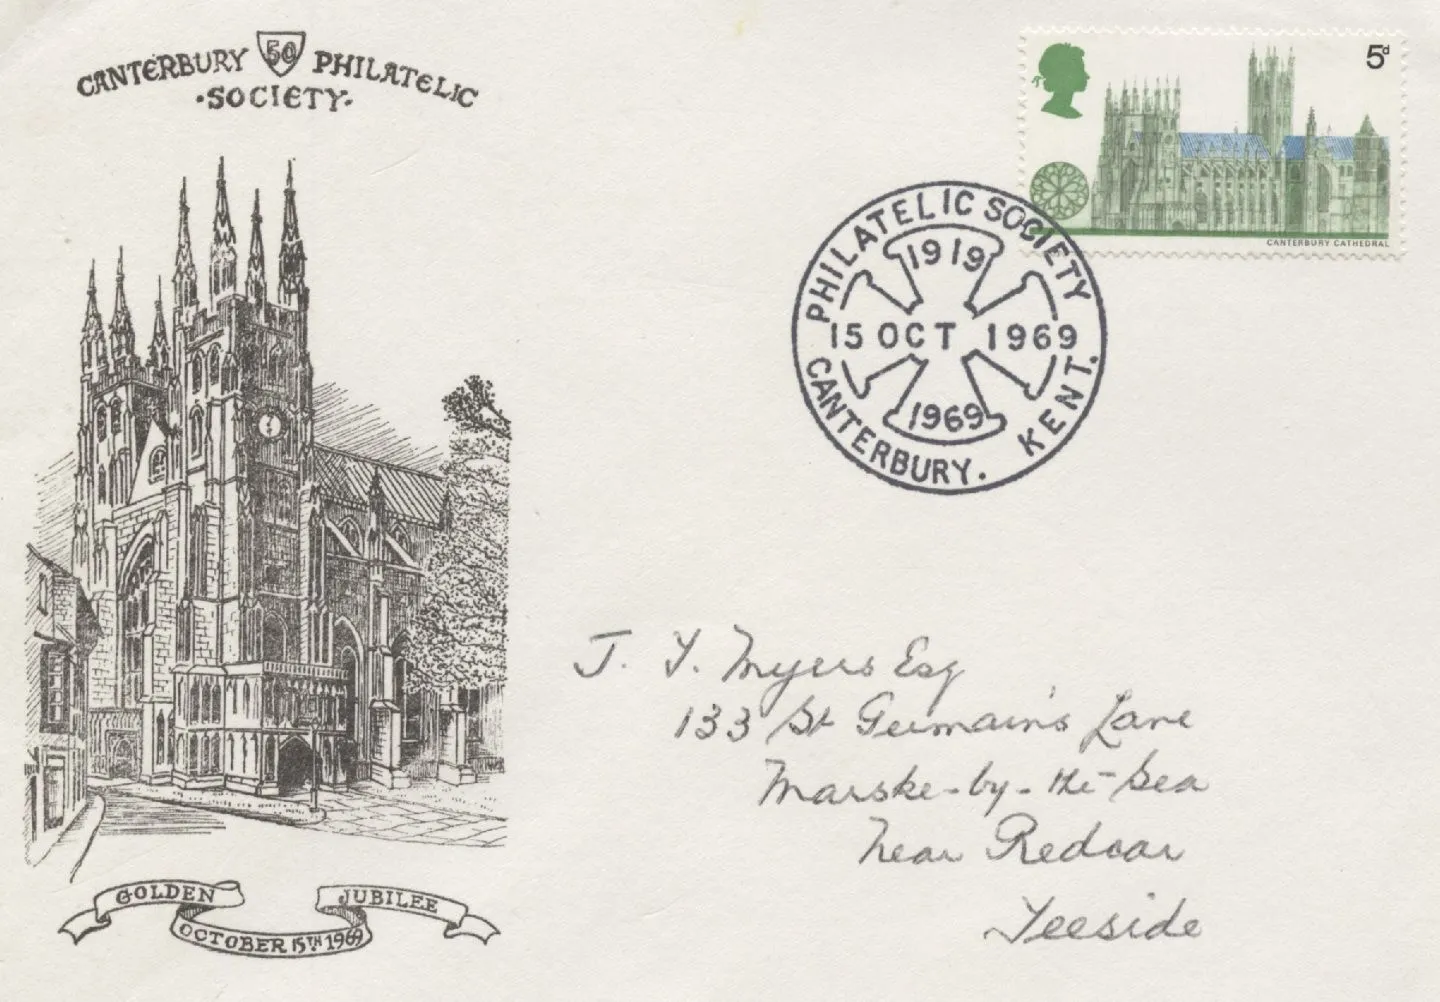 CANTERBURY 50 PHILATELIC
·SOCIETY·
5d
CANTERBURY CATHEDRAL
PHILATELIC SOCIETY
1919
15 OCT 1969
1969
CANTERBURY. KENT.
J. Y. Myers Esq
133 St Germain's Lane
Marske-by-the-Sea
Near Redcar
Teeside
GOLDEN JUBILEE
OCTOBER 15TH 1969